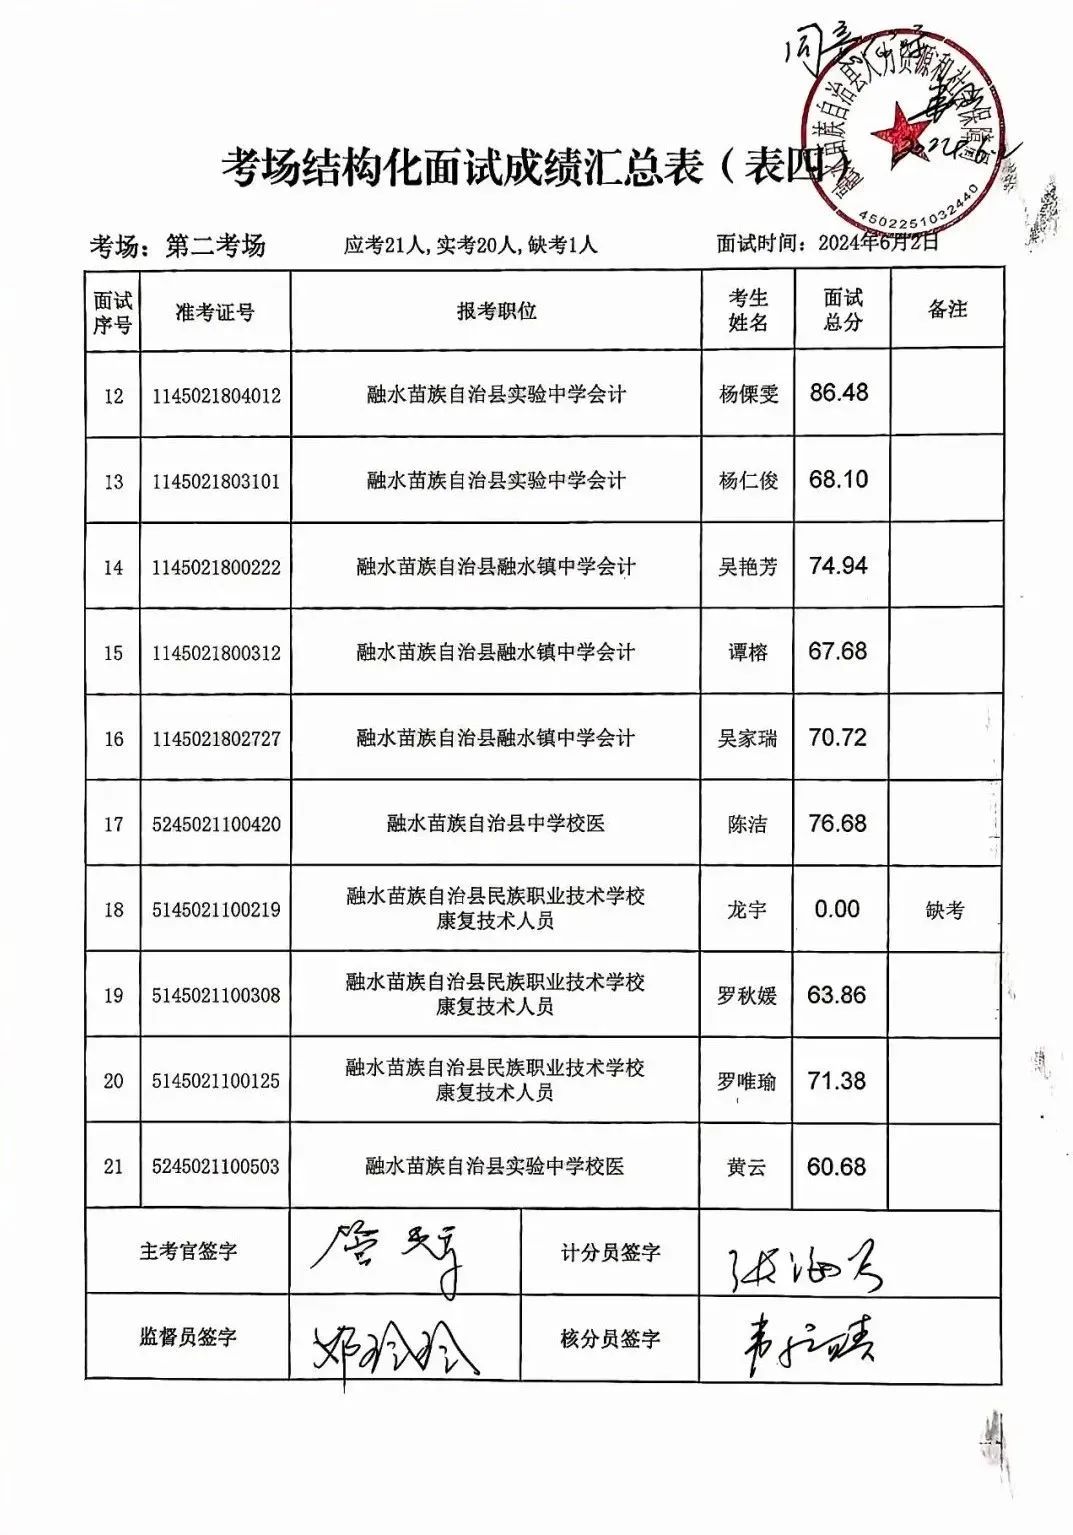 同意
融水苗族自治县人力资源和社会保障局
4502251032440
考场结构化面试成绩汇总表（表四）
考场：第二考场 应考21人,实考20人,缺考1人 面试时间：2024年6月2日
面试序号 准考证号 报考职位 考生姓名 面试总分 备注
12 1145021804012 融水苗族自治县实验中学会计 杨傈雯 86.48
13 1145021803101 融水苗族自治县实验中学会计 杨仁俊 68.10
14 1145021800222 融水苗族自治县融水镇中学会计 吴艳芳 74.94
15 1145021800312 融水苗族自治县融水镇中学会计 谭榕 67.68
16 1145021802727 融水苗族自治县融水镇中学会计 吴家瑞 70.72
17 5245021100420 融水苗族自治县中学校医 陈洁 76.68
18 5145021100219 融水苗族自治县民族职业技术学校康复技术人员 龙宇 0.00 缺考
19 5145021100308 融水苗族自治县民族职业技术学校康复技术人员 罗秋媛 63.86
20 5145021100125 融水苗族自治县民族职业技术学校康复技术人员 罗唯瑜 71.38
21 5245021100503 融水苗族自治县实验中学校医 黄云 60.68
主考官签字 计分员签字
监督员签字 邓玲玲 核分员签字